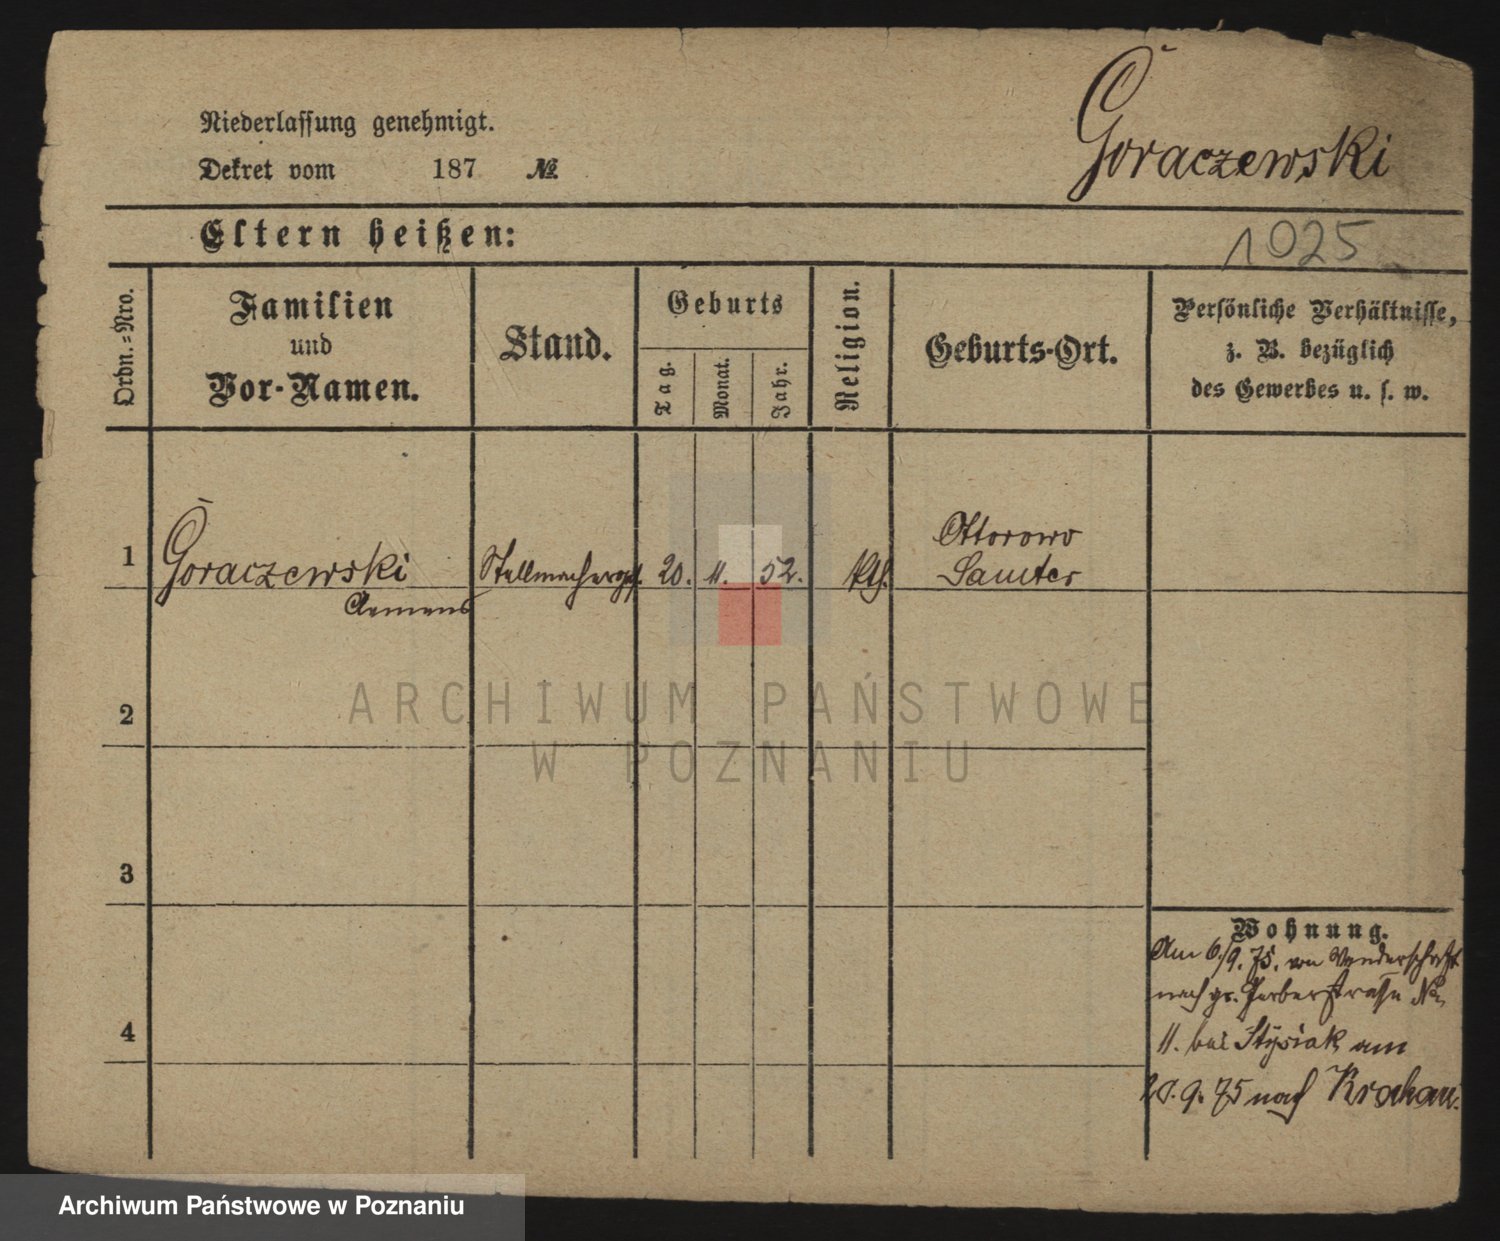 Goraczewski
Niederlassung genehmigt.
Dekret vom 187 №
Eltern heißen:
1025
Ordn.=Nro.
Familien
und
Vor-Namen.
Stand.
Geburts
Tag.
Monat.
Jahr.
Religion.
Geburts-Ort.
Persönliche Verhältnisse,
z. B. bezüglich
des Gewerbes u. s. w.
1
Goraczewski
Clemens
Stellmachergs.
20.
11.
52.
kth.
Ottorowo
Samter
2
3
4
Wohnung.
Am 6./9. 75. von Wanderschaft
nach gr. Gerberstraße No
11. bei Stysiak am
20. 9. 75 nach Krakau.
ARCHIWUM PAŃSTWOWE
W POZNANIU
Archiwum Państwowe w Poznaniu